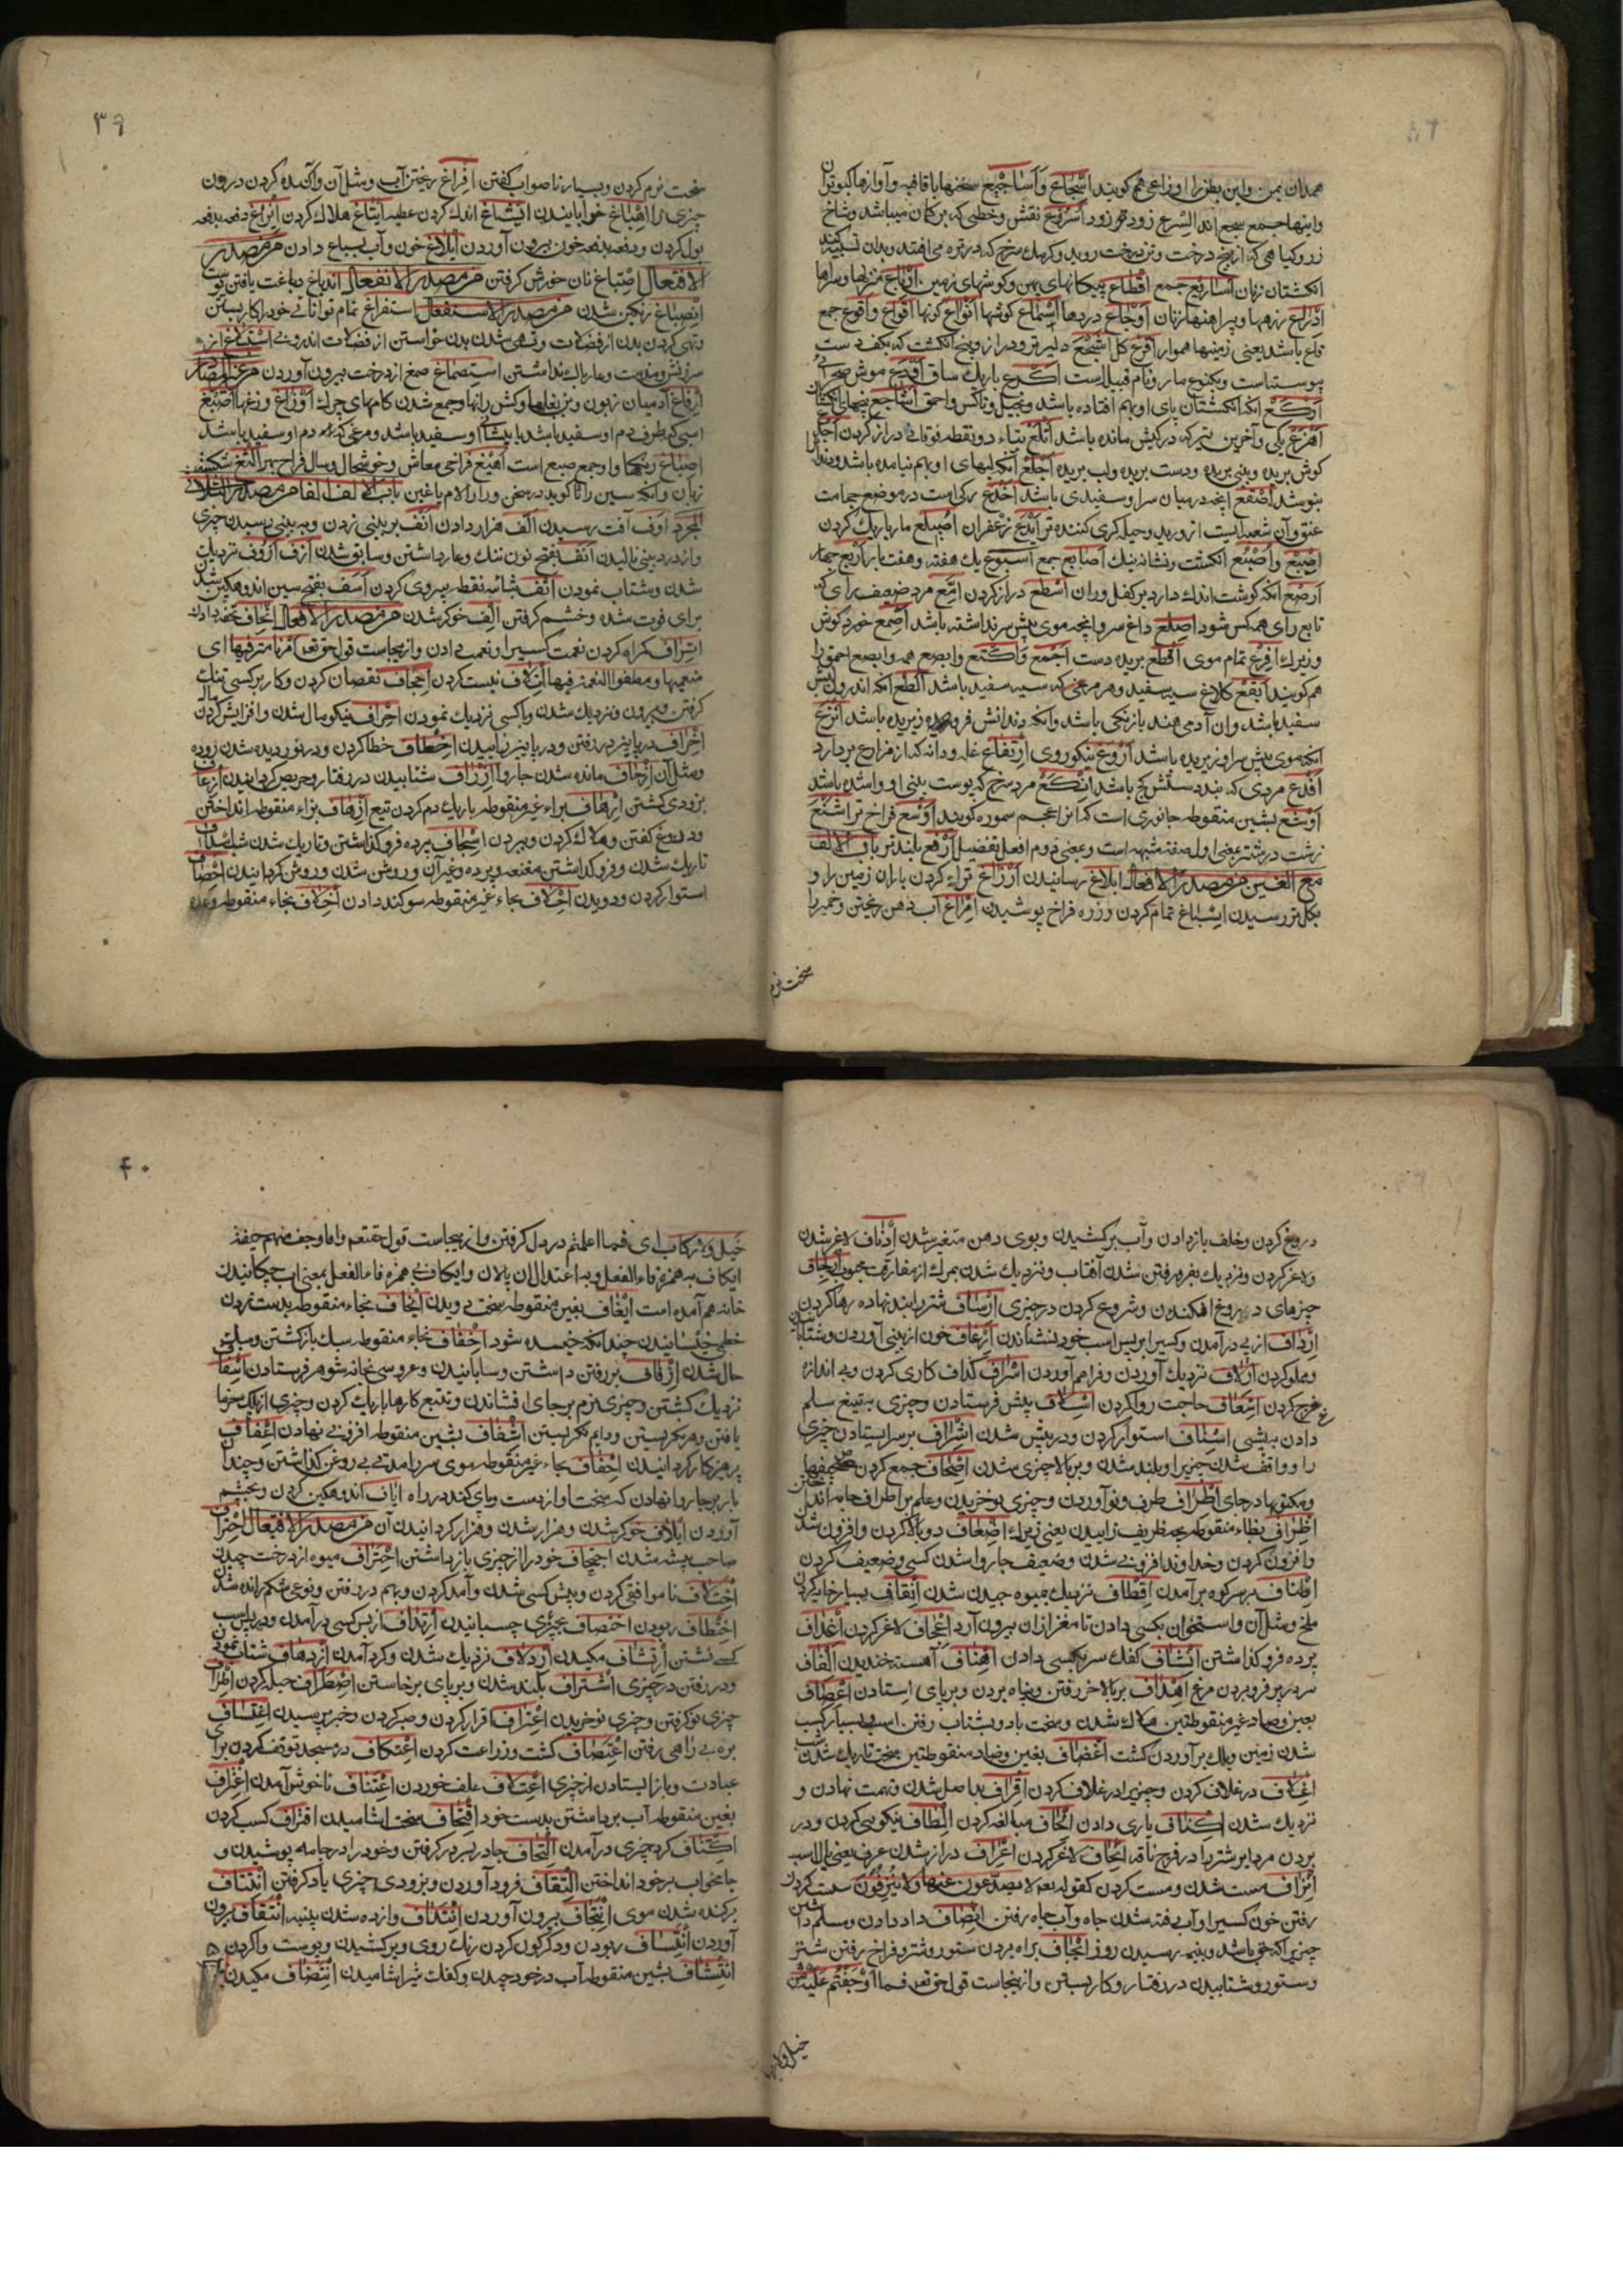 همدان بمن واین بطن را اوزاعی هم کویند اسجاع واساجیع جمع سخنها باقافیه وآوازها کبوتران
واینها جمع سجع اند السرع زودتر زود اسروع نقش وخطی که بر کمان میباشد وشاخ
انکشتان زنان اساریع جمع اقطاع پیکانهای پهن وکوشهای زمین ارباع منزلها وسراها
ادراع زرهها وپیراهنها زنان اوجاع دردها اسماع کوشها انواع کونها اقواع واقوع جمع
قاع باشد یعنی زمینها هموار اشجع دلیرتر ودراز وپنج انکشت که بکف دست
پیوستناست وبکنوع مار ونام قبیله است اکرع باریک ساق
اوکع انکه انکشتان پای او بهم افتاده باشد وبخیل وناکس واحمق اشاجع
اهزع یکی وآخرین تیر که در کیش مانده باشد اتلع بتاء دو نقطه فوقانی دراز کردن
کوش بریده وبینی بریده ودست بریده ولب بریده اجلع آنکه لبهای او بهم نیامده باشد
نپوشد اصقع آنچه درمیان سر او سفیدی باشد اخدع رکی است در موضع حجامت
عنق وآن شعبه ایست از ورید وحیله کری کننده تر ایدع زعفران
اصبع واصبع انکشت ونشانه نیک اصابع جمع اسبوع یک هفته وهفت بار اربع چهار
ارصع آنکه کوشت اندک دارد بر کفل وران اسطع دراز کردن امع مرد ضعیف رای که
تابع رای همه کس شود اصلع داغ سر وآنچه موی پیش سر نداشته باشد اصمع خورد کوش
وزیرک افرع تمام موی اقطع بریده دست اجمع واکتع وابصع همه وابضع احمق را
هم کویند ابقع کلاغ سیه سفید وهر مرغی که سیه سفید باشد
انکه موی پیش سر او بریده باشد اروع نیکوروی ارتفاع غله ودانه که از مزارع بردارد
افدع مردی که بند دستش کج باشد انکع مرد سرخ که پوست بینی او وا شده باشد
اوشع بشین منقوطه جانوری است که انرا عجم سموره کویند اوسع فراخ تر اشنع
زشت تر بمعنی اول صفة مشبهه است وبمعنی دوم افعل تفضیل ارفع بلندتر باب الالف
مع الغین من مصدر الافعال ابلاغ رسانیدن ارزاغ تر اندک کردن باران زمین را و
بکل تر رسیدن اسباغ تمام کردن وزره فراخ پوشیدن امراغ آب دهن ریختن وخمیر را
سخت نرم
۳۹
سخت نرم کردن وبسیار ناصواب کفتن افراغ ریختن آب ومثل آن وآکنده کردن درون
چیزی را اهباغ خوابانیدن انشاغ اندک کردن عطیه ایتاغ هلاک کردن ایزاغ دفعه بدفعه
بول کردن ودفعه بدفعه خون بیرون آوردن ایلاغ خون وآب بسباع دادن من مصدر
الافتعال اصتباغ نان خورش کرفتن من مصدر الانفعال اندباغ دباغت یافتن پوست
انصباغ رنکین شدن من مصدر الاستفعال استفراغ تمام توانائی خود را کار بستن
وتهی کردن بدن از فضلات وتهی شدن بدن خواستن از فضلات اندرونی
سرزنش ومذمت وعار باک نداشتن استصماغ صمغ از درخت بیرون آوردن من غیر المصادر
ارفاغ آدمیان زبون وبن بغلها وکش رانها وجمع شدن کامهای چرک اوزاغ وزغها اصبغ
اسبی که طرف دم او سفید باشد یا پیشانی او سفید باشد ومرغی که دم او سفید باشد
اصباغ رنکها واو جمع صبغ است اهیغ فراخی معاش وخوشحال وسال فراخ الثغ شکسته
زبان وانکه سین را ثا کوید در سخن ورا را لام یا غین باب الالف مع الفا من مصدر الثلاثی
المجرد اوف آفت رسیدن الف هزار دادن انف بر بینی زدن وبه بینی رسیدن چیزی
واز درد بینی نالیدن انف بفتح نون ننک وعار داشتن وسابق شدن ازف ازوف نزدیک
شدن وشتاب نمودن اثف بثاء سه نقطه پیروی کردن اسف بفتح سین اندوهکین شدن
برای فوت شده وخشم کرفتن الف خوکر شدن من مصدر الافعال اتحاف تحفه دادن
اتراف کمراه کردن نعمت کسی را ونعمت دادن وازینجاست قول حق تعالی امرنا مترفیها ای
منعمیها اتلاف نیست کردن اجحاف نقصان کردن وکار بر کسی تنک
کرفتن وبیرون ونزدیک شدن وبا کسی نزدیک نمودن احراف نیکو مال شدن وافزایش کردن
اخراف در پائیز در رفتن ودر پائیز زاییدن اخطاف خطا کردن ودر نوردیده شدن روده
ومثل آن ازحاف مانده شدن چاروا ازراف شتابیدن در رفتار وحریص کردانیدن ازعاف
بزودی کشتن ارهاف براء غیر منقوطه باریک دم کردن تیغ ازهاف بزاء منقوطه انداختن
ودروغ کفتن وهلاک کردن وبردن اسجاف پرده فرو کذاشتن وتاریک شدن شب اسداف
تاریک شدن وفرو کذاشتن مقنعه وپرده وغیر آن وروشن شدن وروشن کردانیدن احصاف
استوار کردن ودویدن احلاف بحاء غیر منقوطه سوکند دادن اخلاف بخاء منقوطه وعده
دروغ کردن وخلف باز دادن وآب برکشیدن وبوی دهن متغیر شدن ادناف لاغر شدن
ولاغر کردن ونزدیک بفرو رفتن شدن آفتاب ونزدیک شدن بمرک از مفارقت محبوب ارجاف
چیزهای دروغ افکندن وشروع کردن در چیزی ارساف شتر را بند نهاده رها کردن
ارداف از پی درآمدن وکسی را بر پس اسب خود نشاندن ارعاف خون از بینی آوردن وشتابانیدن
ومملو کردن ازلاف نزدیک آوردن وفراهم آوردن اسراف کذاف کاری کردن وبی اندازه
خرج کردن اسعاف حاجت روا کردن اسلاف پیش فرستادن وچیزی به تبیع سلم
دادن به پیشی اسناف استوار کردن ودر پیش شدن اشراف بر سر ایستادن چیزی
را وواقف شدن چیزی را وبلند شدن وبر بالا چیزی شدن اصحاف جمع کردن صحیفها
ومکتوبها در جای اطراف طرف ونو آوردن وچیزی نو خریدن وعلم بر اطراف جامه انداختن
اظراف بظاء منقوطه بچه ظریف زاییدن یعنی زیرک اضعاف دوبالا کردن وافزون شدن
وافزون کردن وخداوند افزونی شدن وضعیف چاروا شدن کسی وضعیف کردن
در سر کوه برآمدن اقطاف نزدیک بمیوه چیدن شدن انقاف بسیار خایه کردن
ملخ ومثل آن واستخوان بکسی دادن تا مغز از ان بیرون آرد اعجاف لاغر کردن اغداف
پرده فرو کذاشتن انشاف کفک سر بکسی دادن اهناف آهسته خندیدن الفاف
سر در پر فرو بردن مرغ اهداف بر بالا بر رفتن وپناه بردن وبر پای ایستادن اعصاف
بعین وصاد غیر منقوطتین هلاک شدن وسخت باد وبشتاب رفتن اسب بسیار کسب
شدن زمین وبرک برآوردن کشت اغضاف بغین وضاد منقوطتین سخت تاریک شدن
اغلاف در غلاف کردن وچیزی را در غلاف کردن اقراف بد اصل شدن وتهمت نهادن و
نزدیک شدن اکناف یاری دادن الحاف مبالغه کردن الطاف نیکویی کردن ودر
بردن مرد ابر شتر را در فرج ناقه انحاف لاغر کردن اعراف دراز شدن عرف یعنی یال اسب
انزاف مست شدن ومست کردن کقوله تعالی لا یصدعون عنها ولا ینزفون سست کردن
رفتن خون کسی را وآب رفته شدن چاه وآب چاه رفتن انصاف داد دادن ومسلم داشتن
چیزی را که حق باشد وبنیمه رسیدن روز ایجاف براه بردن ستور وشتر وفراخ رفتن شتر
وستور وشتابیدن در رفتار وکار بستن وازینجاست قول حق تعالی فما اوجفتم علیه من
خیل ولا رکاب
۴۰
خیل ولا رکاب ای فما اعلمتم در دل کرفتن وازینجاست قول حق تعالی واما وجف منهم خیفة
ایکاف به همزه فاء الفعل وبه اعتدال ان پالان وایکاف بی همزه فاء الفعل بمعنی اب چکانیدن
خانه هم آمده است ایغاف بغین منقوطه سخت دویدن ایخاف بخاء منقوطه بدست زدن
خطمی خیسانیدن چندانکه خیسیده شود اخفاف بخاء منقوطه سبک بازکشتن وسبک
حال شدن ازفاف بر رفتن داشتن وشتابانیدن وعروس بخانه شوهر فرستادن اسفاف
نزدیک کشتن وچیزی نرم بر جای افشاندن وتتبع کارها باریک کردن وچیزی از
یافتن وهر نکریستن ودایم نکریستن اشفاف بشین منقوطه افزونی نهادن اعفاف
پرهیزکار کردانیدن احفاف بحاء غیر منقوطه موی سر را مدتی بی روغن کذاشتن وچندان
بار بر چاروا نهادن که سخت او از دست وپای کند در راه ایلاف اندوهکین کردن وبخشم
آوردن ایلاف خوکر شدن وهزار شدن وهزار کردانیدن آن من مصدر الافتعال احتراف
صاحب پیشه شدن اجتحاف خود را از چیزی باز داشتن اختراف میوه از درخت چیدن
اختلاف ناموافقی کردن وپیش کسی شدن وآمد کردن وبهم در رفتن ونوعی شکم رانده شدن
اختطاف ربودن اختصاف بچیزی چسبانیدن ارتداف از پس کسی در آمدن ودر پس اسب
کسی نشستن ارتشاف مکیدن ازدلاف نزدیک شدن وکرد آمدن ازدهاف شتاب نمودن
ودر رفتن در چیزی اشتراف بلند شدن وبر پای برخاستن اضطراف حیله کردن اطراف
چیزی نو کرفتن وچیزی نو خریدن اعتراف اقرار کردن وصبر کردن وخبر پرسیدن اعتساف
بره بی راهی رفتن اعتصاف کشت وزراعت کردن اعتکاف در مسجد توقف کردن برای
عبادت وباز ایستادن از چیزی اعتلاف علف خوردن اعتناف ناخوش آمدن اغتراف
بغین منقوطه آب برداشتن بدست خود اقتحاف سخت اشامیدن اقتراف کسب کردن
اکتناف کرد چیزی درآمدن التحاف چادر بسر در کرفتن وخود را در جامه پوشیدن و
جامخواب بر خود انداختن التقاف فرود آوردن وبزودی چیزی یاد کرفتن انتتاف
برکنده شدن موی انتجاف بیرون آوردن انتداف وازده شدن پنبه انتقاف بیرون
آوردن انتساف ربودن ودکرکون کردن رنک روی وبرکشیدن وپوست واکردن
انتشاف بشین منقوطه آب در خود چیدن وکفک شیر اشامیدن انتضاف مکیدن